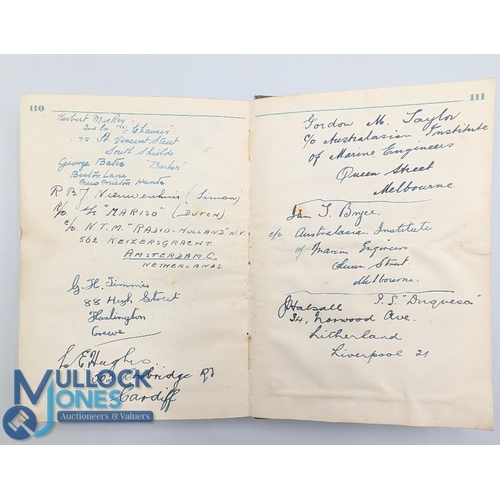 110
Herbert Mackey
2nd En "Chaucer"
72 St Vincent Street
South Shields
George Bates "Barker"
Beeton Lane
New Milton Hants
R.B.J. Nieuwenhuis (Simon)
R/O. S/S "MARISO" (DUTCH)
c/o. N.T.M. "RADIO-HOLLAND" N.V
562 KEIZERSGRACHT
AMSTERDAM.C.
NETHERLANDS.
G. H. Timmis
88 High Street
Haslington
Crewe
L. E. Hughes.
Rd
Cardiff
111
Gordon M. Taylor
c/o Australasian Institute
of Marine Engineers
Queen Street
Melbourne
Ian T. Bryce.
c/o Australasian Institute
of Marine Engineers
Queen Street
Melbourne.
J Halsall S.S "Duquesa"
34, Norwood Ave.
Litherland
Liverpool 21
MULLOCK
JONES
Auctioneers & Valuers